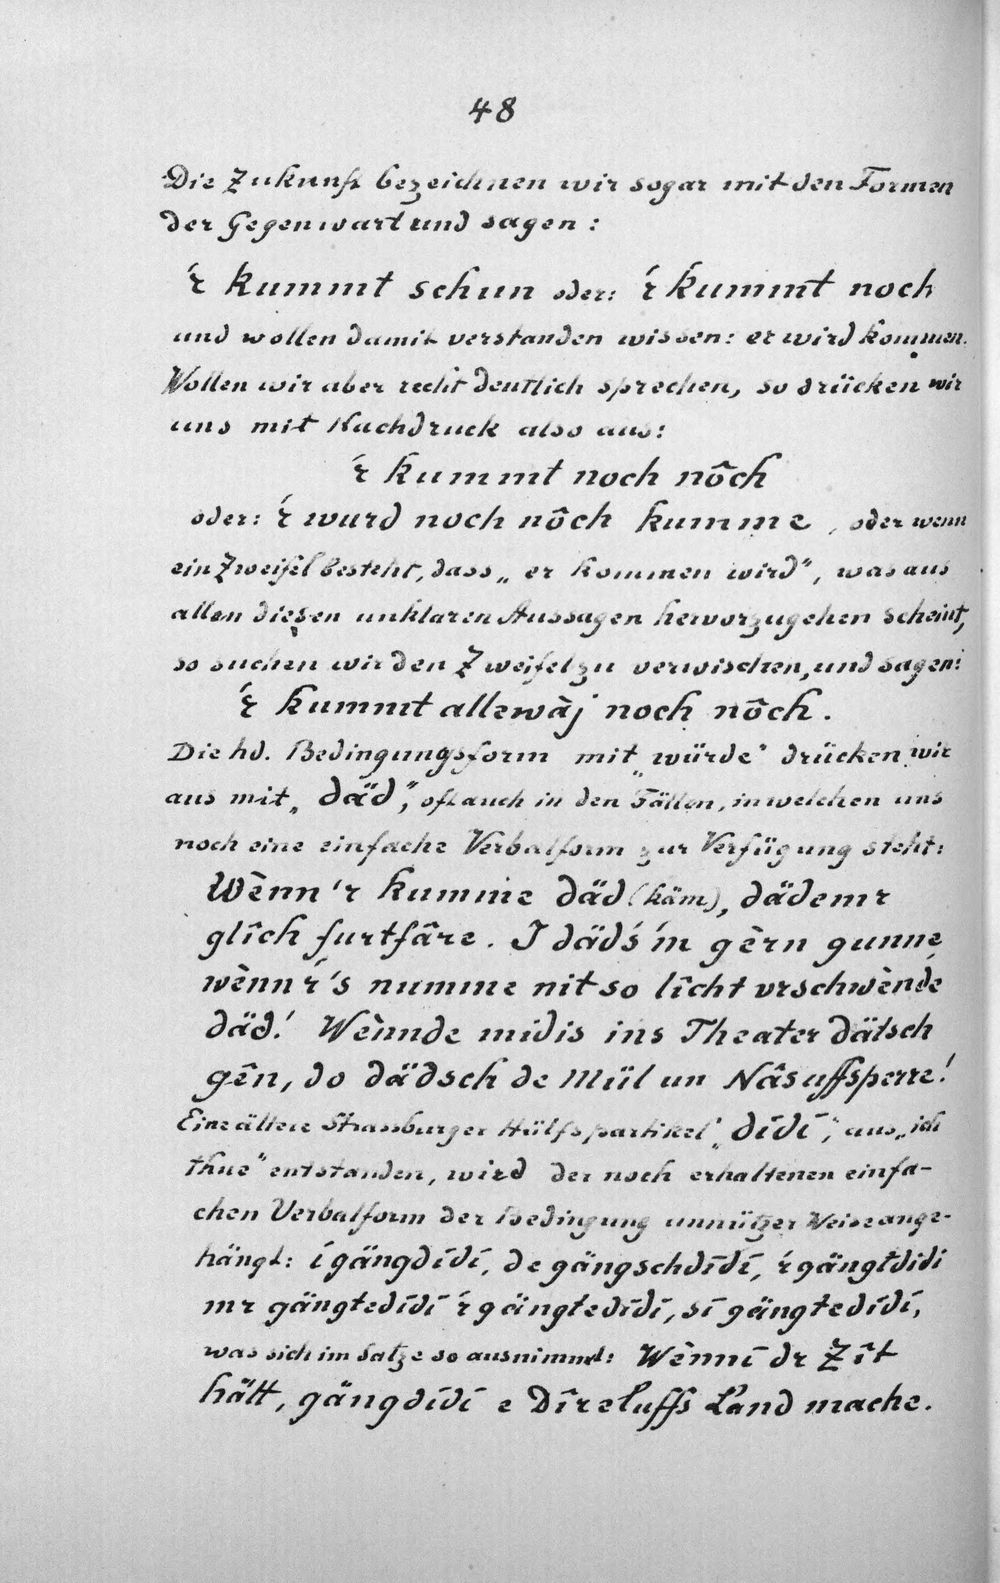 48
Die Zukunft bezeichnen wir sogar mit den Formen
der Gegenwart und sagen:
'r kummt schun oder: 'r kummt noch
und wollen damit verstanden wissen: er wird kommen.
Wollen wir aber recht deutlich sprechen, so drücken wir
uns mit Nachdruck also aus:
'r kummt noch nôch
oder: 'r wurd noch nôch kumme, oder wenn
ein Zweifel besteht, dass „er kommen wird“, was aus
allen diesen unklaren Aussagen hervorzugehen scheint,
so suchen wir den Zweifel zu verwischen, und sagen:
'r kummt allewàj noch nôch.
Die hd. Bedingungsform mit „würde“ drücken wir
aus mit „däd“, oft auch in den Fällen, in welchen uns
noch eine einfache Verbalform zur Verfügung steht:
Wènn 'r kumme däd (käm), dädemr
glîch furtfâre. I däd's 'm gèrn gunne
wènn'r's numme nit so lîcht vrschwènde
däd! Wènnde midis ins Theater dätsch
gên, do dädsch de Mül un Nâs uffsperre!
Eine ältere Strassburger Hülfspartikel „dídí“, aus „ich
thue“ entstanden, wird der noch erhaltenen einfa-
chen Verbalform der Bedingung unnützer Weise ange-
hängt: í gängdídí, de gängschdídí, 'r gängtdidi
mr gängtedídí 'r gängtedídí, sí gängtedídí,
was sich im Satze so ausnimmt: Wènní dr Zît
hätt, gängdídí e Dîreluffs Land mache.